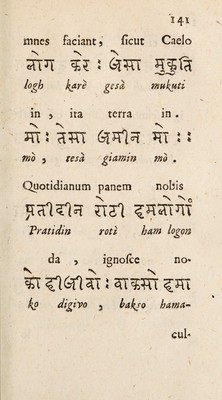 141
mnes faciant, sicut Caelo
लोग करे : जेसा मुकुति
logh karè gesà mukuti
in, ita terra in.
मो : तेसा जमीन मो ::
mò, tesà giamin mò.
Quotidianum panem nobis
प्रतीदीन रोठी हमलोगों
Pratidin rotì ham logon
da, ignosce no-
को दीजीवो : वाकसो हमा
ko digivo, bakso hama-
cul-